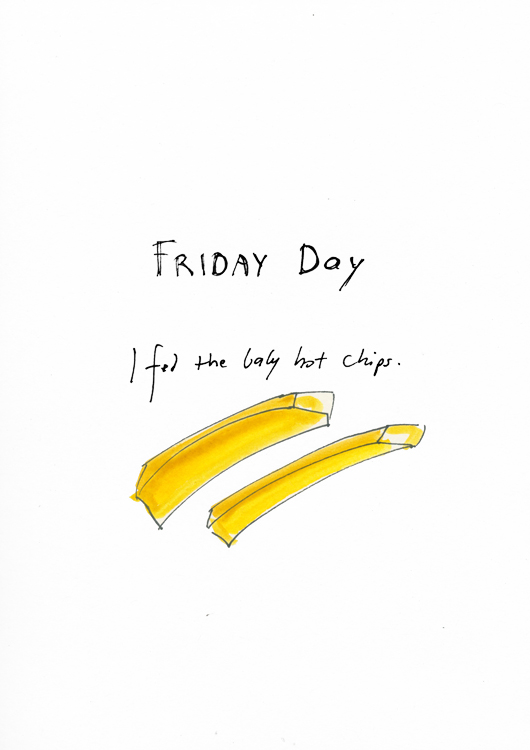 FRIDAY Day
I fed the baby hot chips.